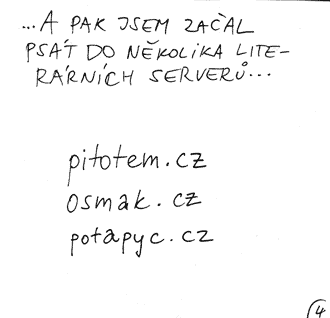 ...A PAK JSEM ZAČAL
PSÁT DO NĚKOLIKA LITE-
RÁRNÍCH SERVERŮ...
pitotem.cz
osmak.cz
potapyc.cz
4